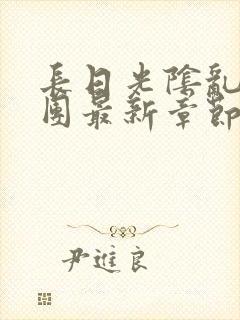 長日光陰亂
團最新章節
尹進良